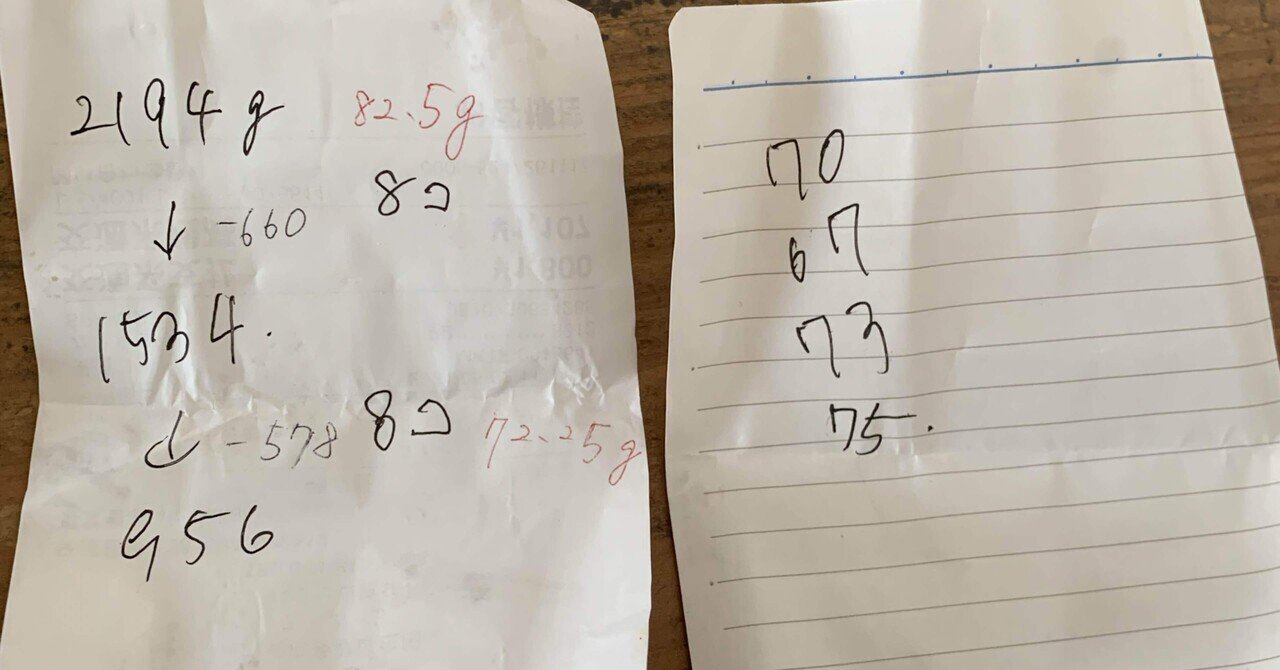 2194g 82.5g
8コ
↓ -660
1534.
↓ -578 8コ 72.25g
956
70
67
73
75.